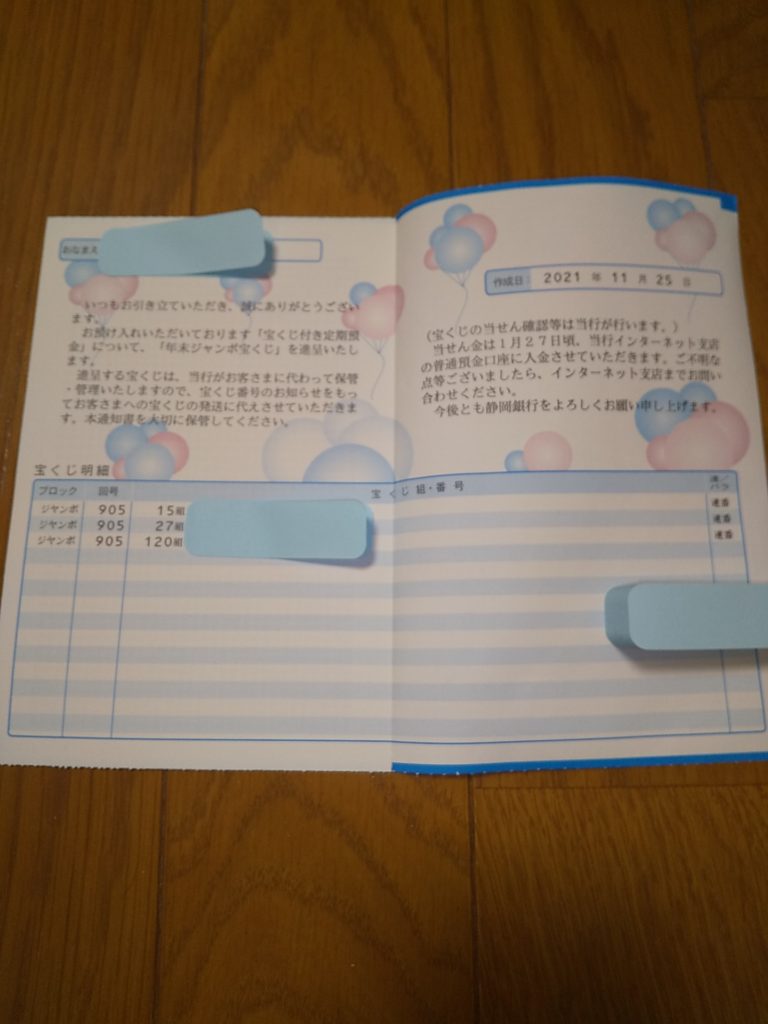 おなまえ
いつもお引き立ていただき、誠にありがとうござい
ます。
お預け入れいただいております「宝くじ付き定期預
金」について、「年末ジャンボ宝くじ」を進呈いたし
ます。
進呈する宝くじは、当行がお客さまに代わって保管
・管理いたしますので、宝くじ番号のお知らせをもっ
てお客さまへの宝くじの発送に代えさせていただきま
す。本通知書を大切に保管してください。
作成日: 2021 年 11 月 25 日
(宝くじの当せん確認等は当行が行います。)
当せん金は1月27日頃、当行インターネット支店
の普通預金口座に入金させていただきます。ご不明な
点等ございましたら、インターネット支店までお問い
合わせください。
今後とも静岡銀行をよろしくお願い申し上げます。
宝くじ明細
ブロック 回号 宝くじ組・番号 連/バラ
ジャンボ 905 15組 連番
ジャンボ 905 27組 連番
ジャンボ 905 120組 連番